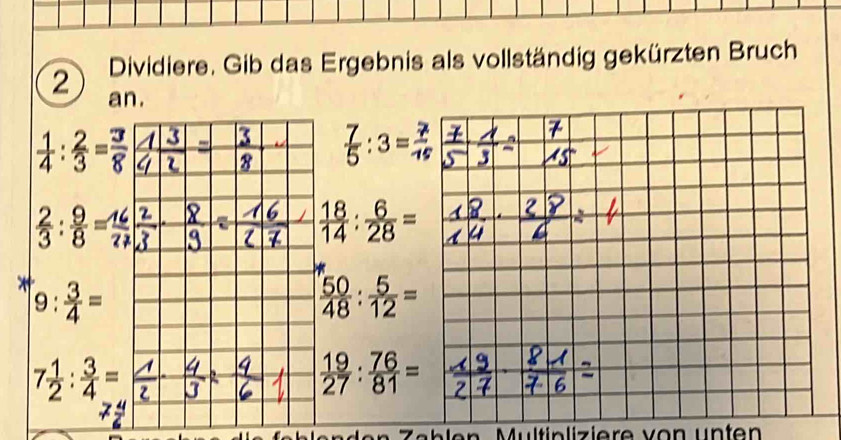 2 Dividiere. Gib das Ergebnis als vollständig gekürzten Bruch
an.
1/4 : 2/3 = 3/8 1/4 3/2 = 3/8 ✓ 7/5 : 3 = 7/15 7/5 · 1/3 = 7/15 ✓
2/3 : 9/8 = 16/27 2/3 · 8/9 = 16/27 ✓ 18/14 : 6/28 = 18/14 · 28/6 =
* 9 : 3/4 = * 50/48 : 5/12 =
7 1/2 : 3/4 = 1/2 · 4/3 = 4/6 19/27 : 76/81 = 19/27 · 81/76 =
7 4/6
Zahlen. Multipliziere von unten